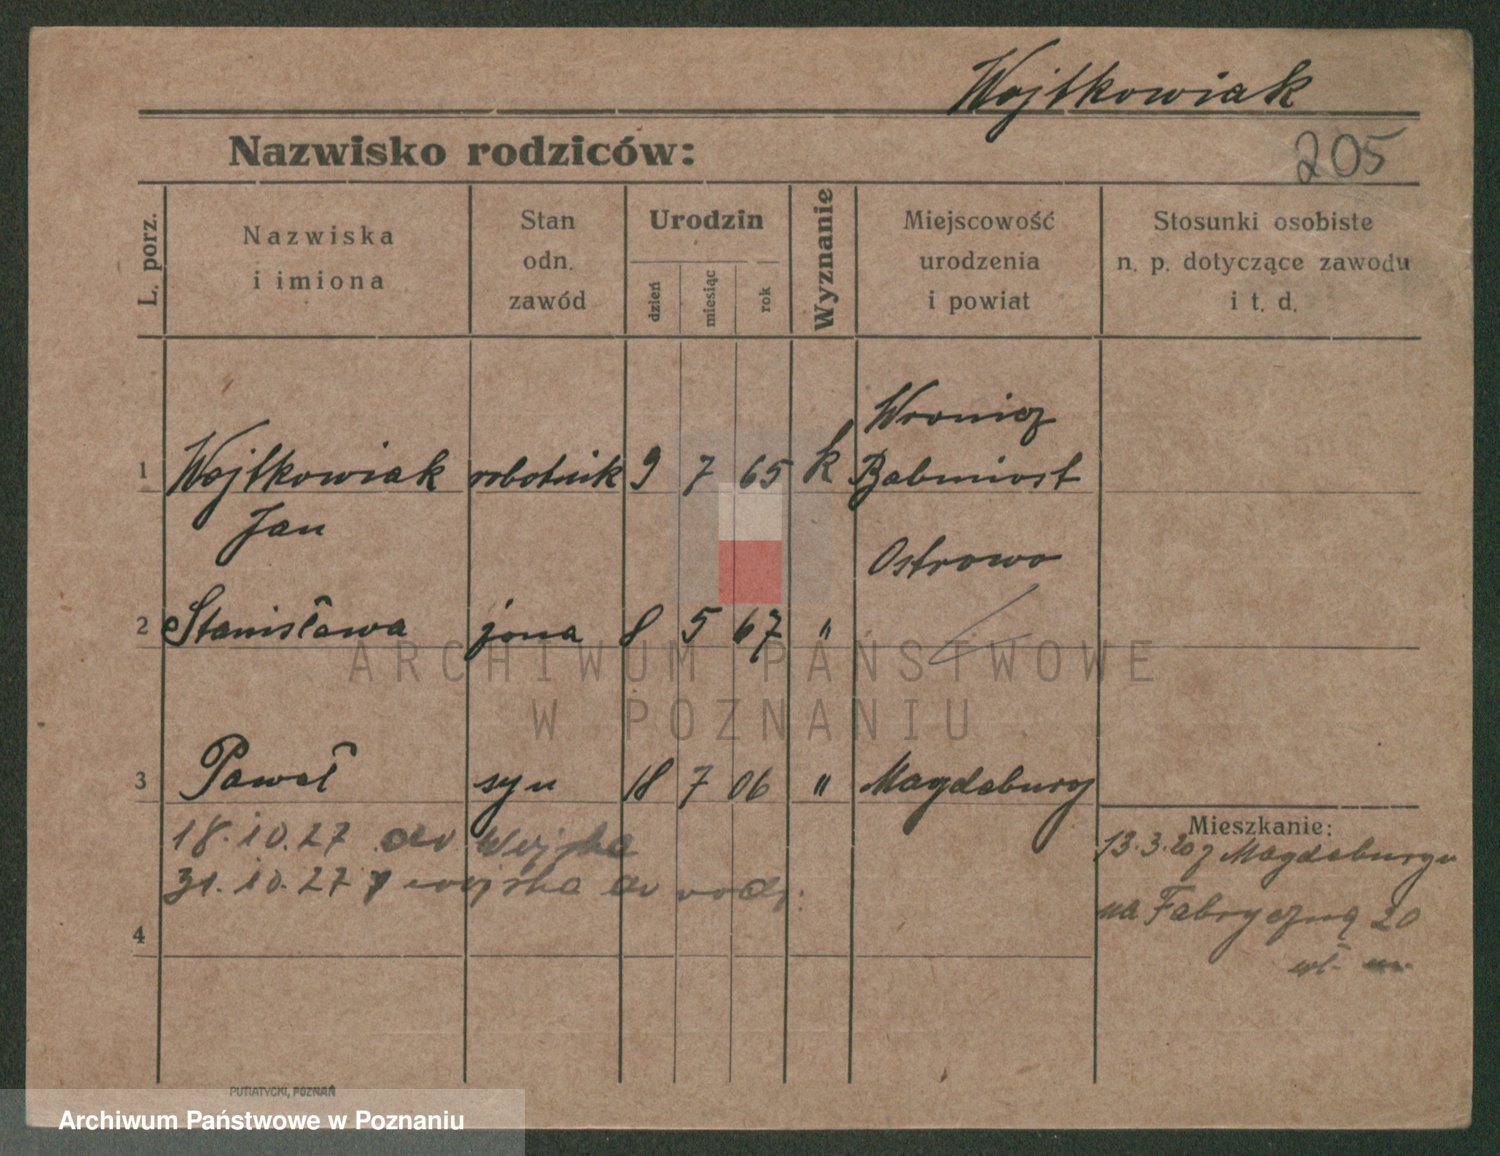 Wojtkowiak
Nazwisko rodziców:
205
L. porz.
Nazwiska
i imiona
Stan
odn.
zawód
Urodzin
dzień
miesiąc
rok
Wyznanie
Miejscowość
urodzenia
i powiat
Stosunki osobiste
n. p. dotyczące zawodu
i t. d.
Wronicz
1 Wojtkowiak robotnik 9 7 65 k Babmiost
Jan
Ostrowo
2 Stanisława żona 8 5 67 "
ARCHIWUM PAŃSTWOWE
W POZNANIU
3 Paweł syn 18 7 06 " Magdeburg
Mieszkanie:
18.10.27 do wojska
13.3.20 z Magdeburga
31.10.27 z wojska do rodz.
na Fabryczną 20
4
PUTIATYCKI, POZNAŃ
Archiwum Państwowe w Poznaniu